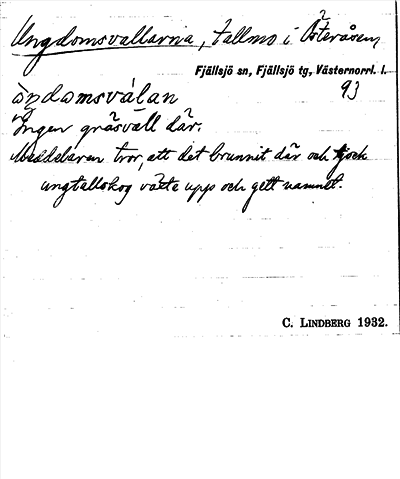 Ungdomsvallarna, tallmo i Österåsen,
Fjällsjö sn, Fjällsjö tg, Västernorrl. l.
93
Ingen gräsvall där.
Meddelaren tror, att det brunnit där och tjock
ungtallskog växte upp och gett namnet.
C. LINDBERG 1932.